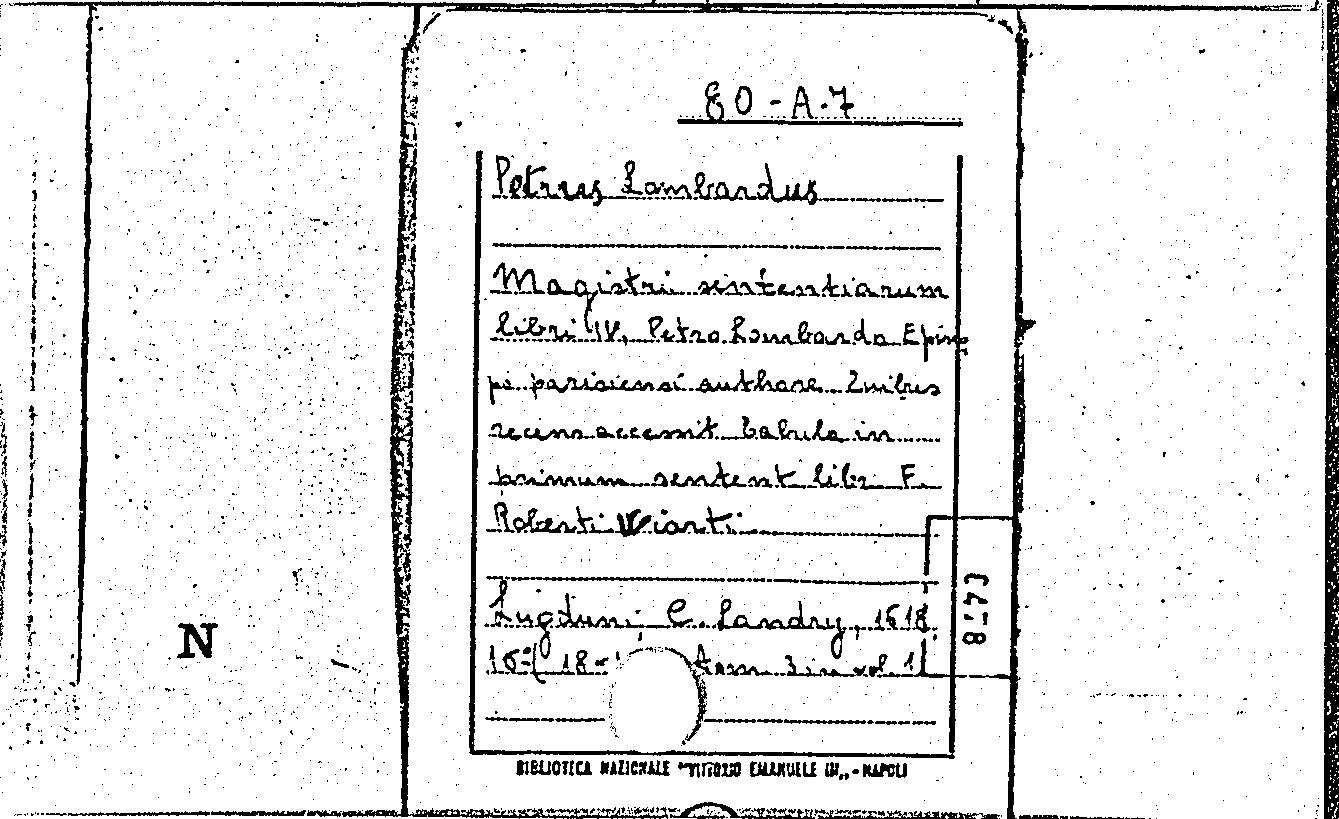 80-A-7
Petrus Lombardus
Magistri sententiarum
libri IV, Petro Lombardo Episco
pi parisiensi authore
recens accessit tabula in
primum sentent libr F.
Roberti
Lugduni, C. Landry, 1618,
tom. 3 in vol. 1
N
BIBLIOTECA NAZIONALE "VITTORIO EMANUELE III„ - NAPOLI